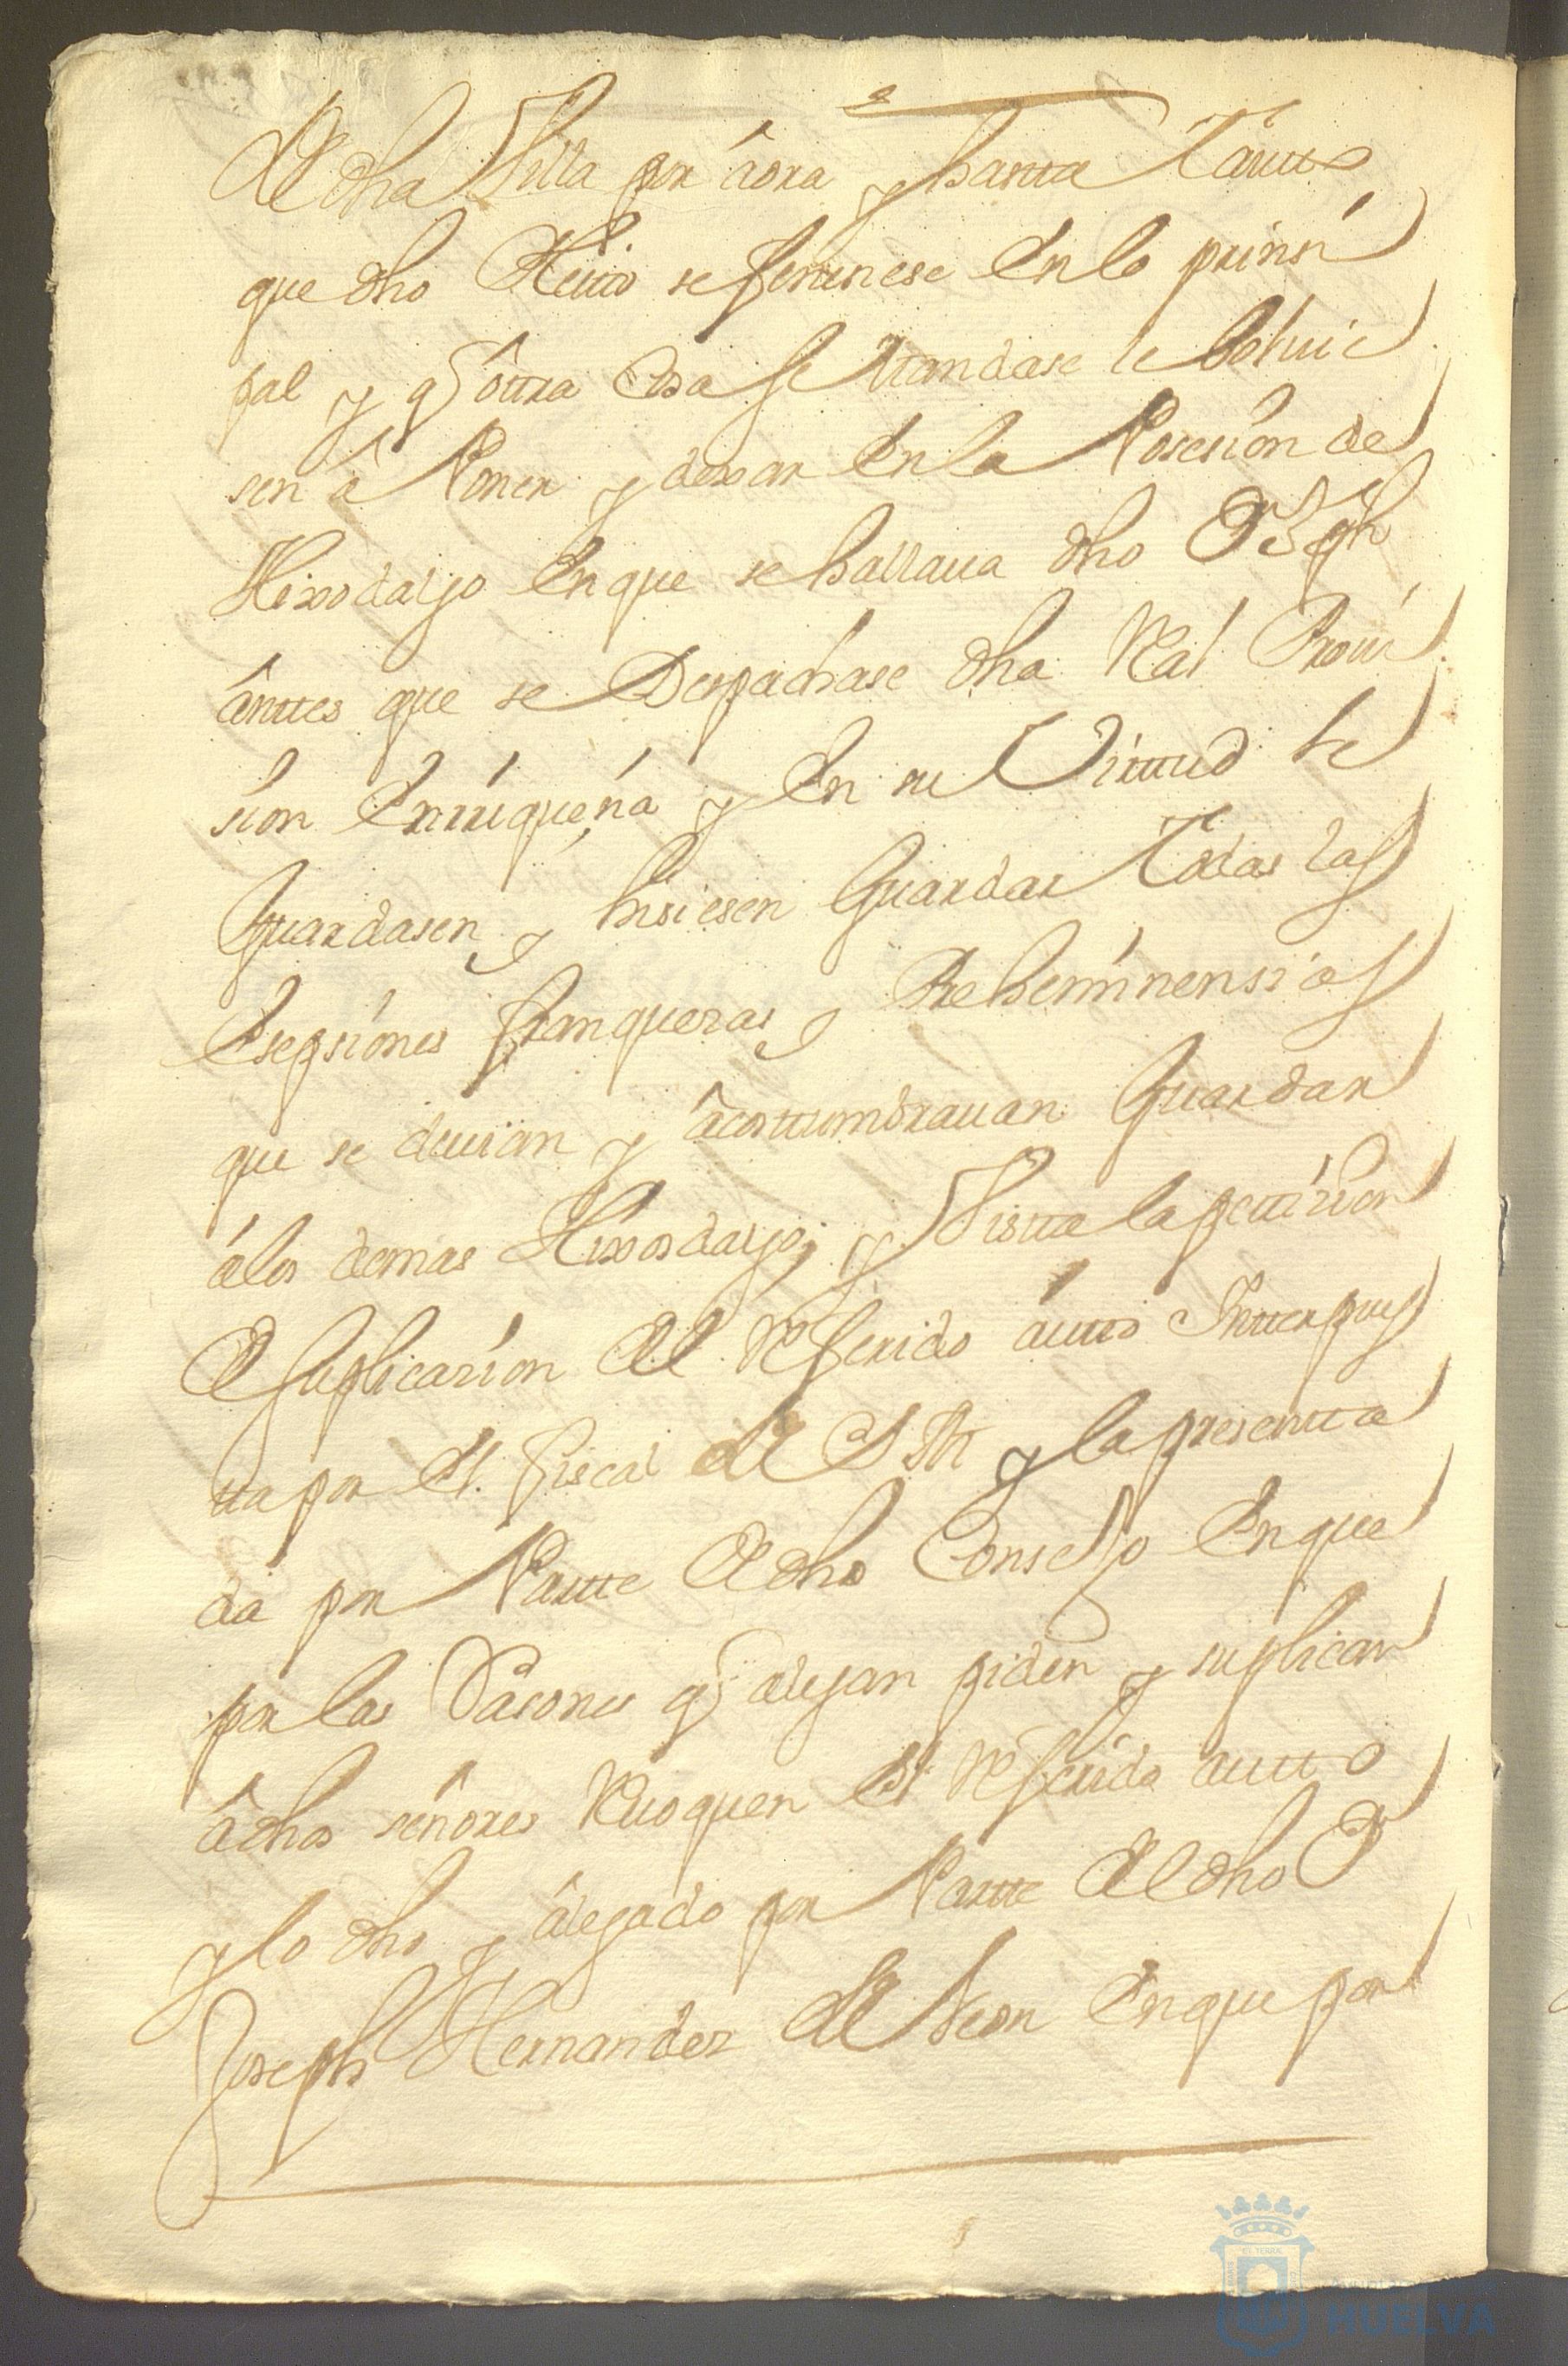 de dha Villa por âora y hasta tantto
que dho Pleitto se fenesiese en lo prinsi
pal y q ôttra Cosa se Mandase le bolvie
sen â Poner y dexar en la Posesion de
Hixodalgo en que se hallaua dho
ânttes que se Despachase dha Rl Proui
sion Enrriqueña y en su Virttud le
Guardasen y hisiesen Guardar Todas las
Esepsiones franquezas y Preheminensias
que se deuian y âcosttumbrauan Guardar
â los demas Hixosdalgo; y Vistta la petticion
de suplicazion del Referido autto Intterpues
tta por el fiscal de S M y la presentta
da por Partte de dho Consejo en que
por las Rasones q alegan piden y suplican
â dhos señores Reuoquen el Referido autto
y lo dho y âlegado por Partte del dho Dn
Joseph Hernandez de Leon en que por
HUELVA